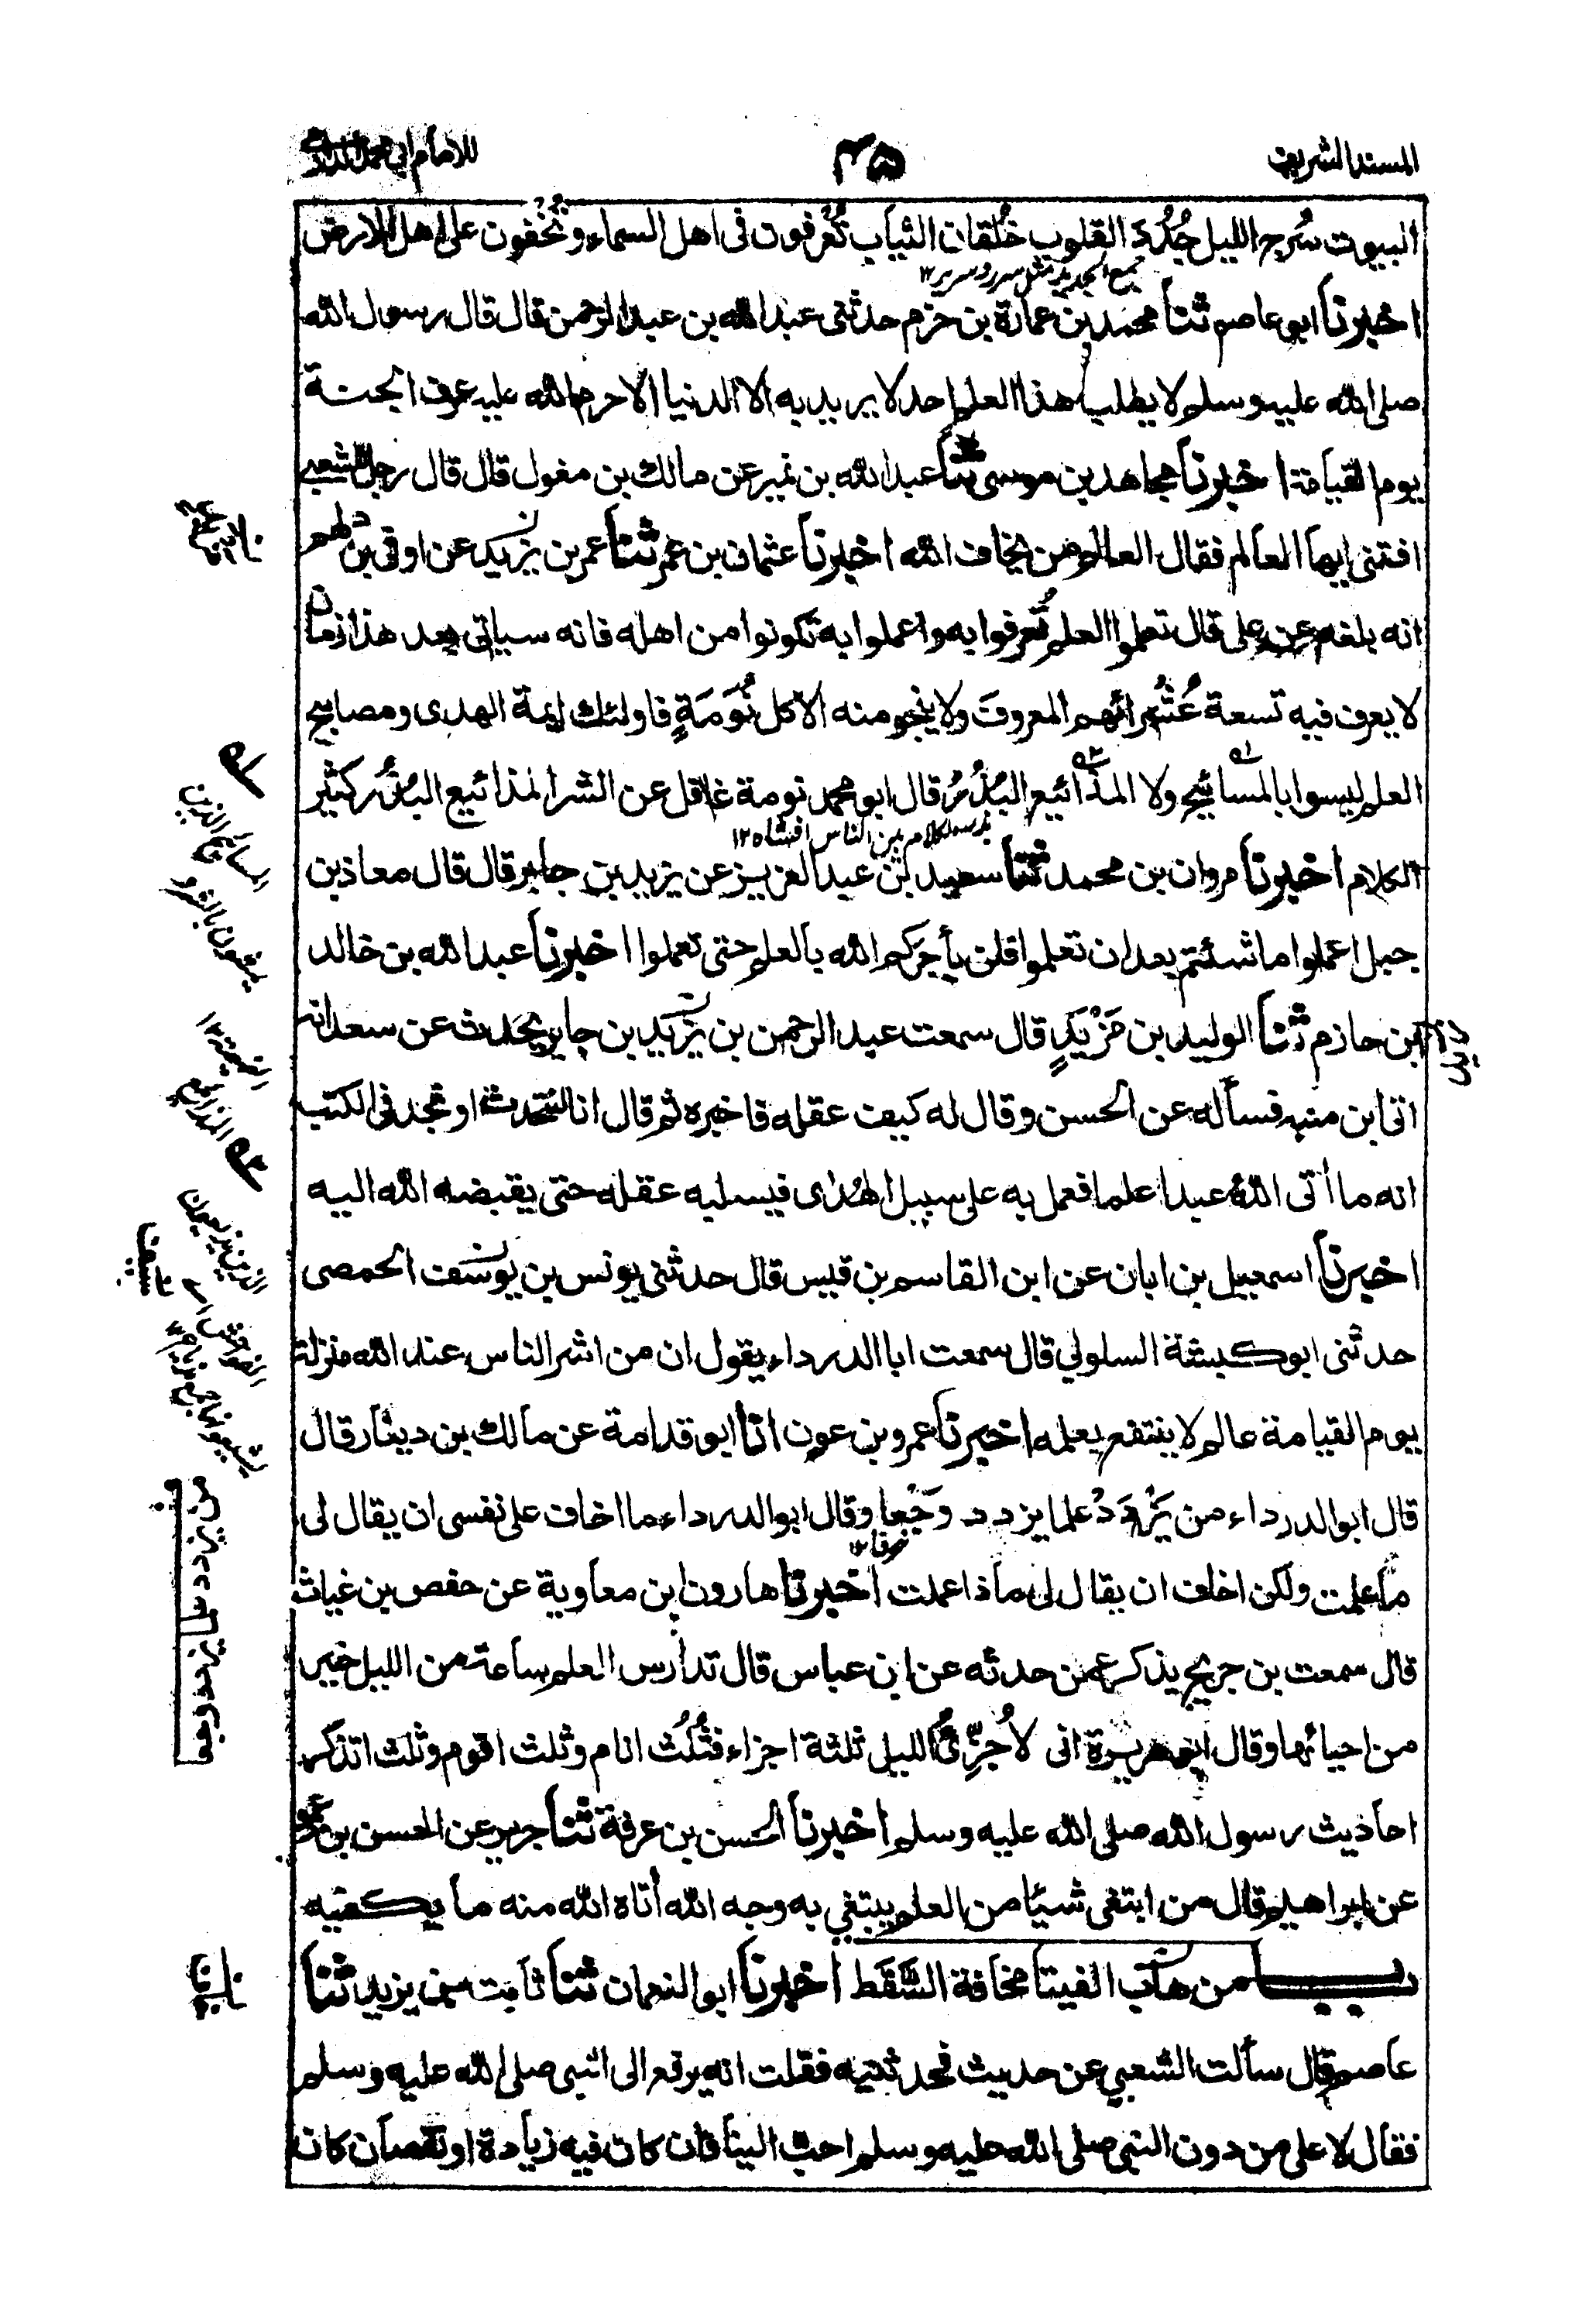 المسند الشريف
٤٥
للامام ابي محمد الدارمي
البيوت سُرج الليل جُدُدَ القلوب خُلقان الثياب تُعرفون فى اهل السماء وتُخفون على اهل الارض
جمع الجديد مثل سرر وسرير ١٢
اخبرنا ابو عاصم ثنا محمد بن عمارة بن حزم حدثنى عبد الله بن عبد الرحمن قال قال رسول الله
صلى الله عليه وسلم لا يطلب هذا العلم احد لا يريد به الا الدنيا الا حرم الله عليه عرف الجنة
يوم القيامة اخبرنا مجاهد بن موسى ثنا عبد الله بن نمير عن مالك بن مغول قال قال رجل للشعبي
افتنى ايها العالم فقال العالم من يخاف الله اخبرنا عثمان بن عمر ثنا عمر بن يزيد عن اوفى بن دلهم
انه بلغه عن على قال تعلموا العلم تُعرفوا به واعملوا به تكونوا من اهله فانه سياتى بعد هذا زمان
لا يعرف فيه تسعة عُشُرائهم المعروفَ ولا ينجو منه الا كل نُوَمَةٍ فاولئك ايمة الهدى ومصابيح
العلم ليسوا بالمسائيح ولا المذائيع البُذُرُ قال ابو محمد نومة غافل عن الشر المذائيع البُذُر كثير
بذر سله كلام بين الناس افشاه ١٢
الكلام اخبرنا مروان بن محمد ثنا سعيد بن عبد العزيز عن يزيد بن جابر قال قال معاذ بن
جبل اعملوا ما شئتم بعد ان تعلموا فلن يأجركم الله بالعلم حتى تعملوا اخبرنا عبد الله بن خالد
بن حازم ثنا الوليد بن مَزْيَدٍ قال سمعت عبد الرحمن بن يزيد بن جابر يحدث عن سعد انه
اتى ابن منبه فسأله عن الحسن وقال له كيف عقله فاخبره ثم قال انا لنتحدث او نجد فى الكتب
انه ما أتى اللهُ عبدا علما فعمل به على سبيل الهُدٰى فيسلبه عقله حتى يقبضه الله اليه
اخبرنا اسمعيل بن ابان عن ابن القاسم بن قيس قال حدثنى يونس بن يوسف الحمصى
حدثنى ابو كبشة السلولي قال سمعت ابا الدرداء يقول ان من اشر الناس عند الله منزلة
يوم القيامة عالم لا ينتفع بعلمه اخبرنا عمرو بن عون انا ابو قدامة عن مالك بن دينار قال
قال ابو الدرداء من يَزْدَدْ علما يزدد وَجْعا وقال ابو الدرداء ما اخاف على نفسى ان يقال لى
خوفا ١٢
ما علمت ولكن اخاف ان يقال لى ماذا عملت اخبرنا هارون ابن معاوية عن حفص بن غياث
قال سمعت بن جريج يذكر عمن حدثه عن ابن عباس قال تدارس العلم ساعة من الليل خير
من احيائها وقال ابو هريرة انى لاُجزِّئُ الليل ثلثة اجزاء فثُلُث انام وثلث اقوم وثلث اتذكر
احاديث رسول الله صلى الله عليه وسلم اخبرنا الحسن بن عرفة ثنا جرير عن الحسن بن عمرو
عن ابراهيم قال من ابتغى شيئا من العلم يبتغي به وجه الله أتاه الله منه ما يكفيه
باب من هاب الفيتا مخافة السَّقَط اخبرنا ابو النعمان ثنا ثابت بن يزيد ثنا
عاصم قال سألت الشعبي عن حديث فحدثنيه فقلت انه يرفع الى النبى صلى الله عليه وسلم
فقال لا على من دون النبى صلى الله عليه وسلم احب الينا فان كان فيه زيادة او نقصان كان
له
المسائيح الذين
يمشون بالشر و
النميمة ١٢
المذائيع
الذين يذيعون
من يزدد علما يزدد وجعا